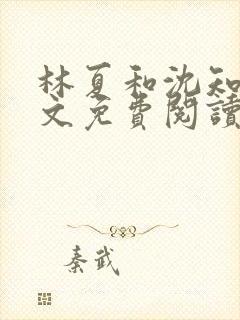 林夏和沈知
文免費閱讀
秦武